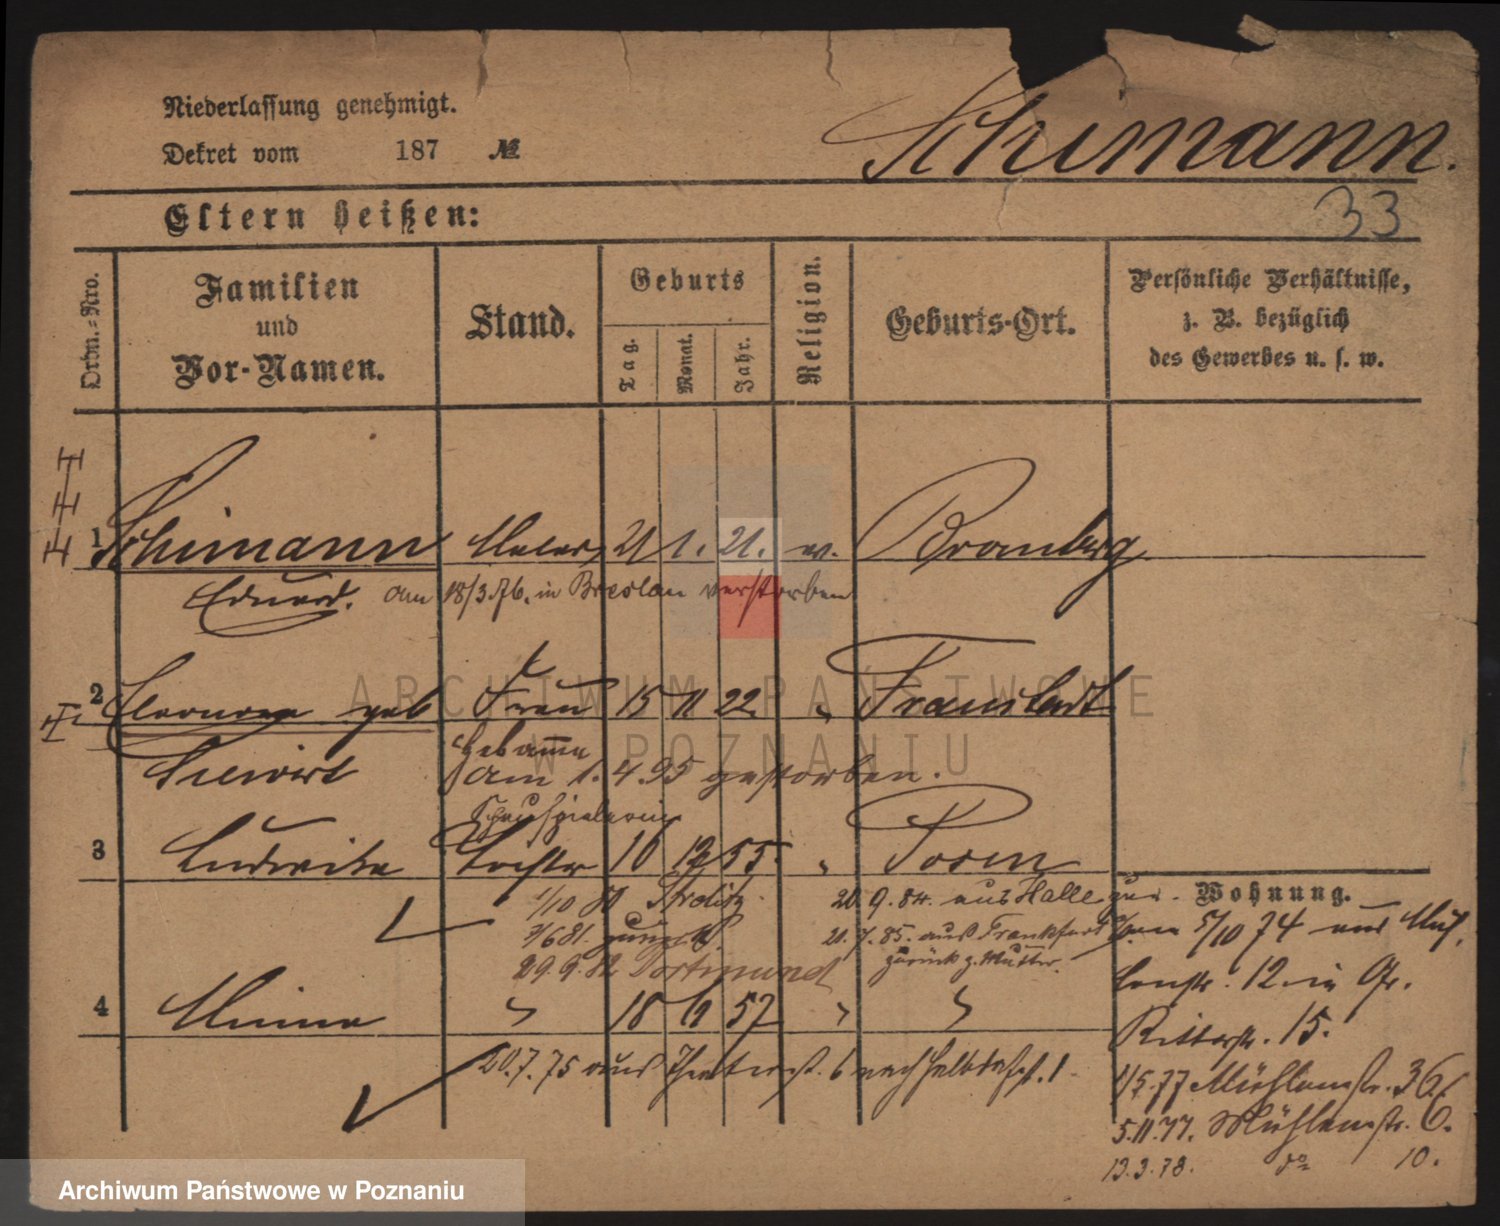 Niederlassung genehmigt.
Dekret vom 187 №
Schimann.
33
Eltern heißen:
Ordn.-Nro.
Familien
und
Vor-Namen.
Stand.
Geburts
Tag.
Monat.
Jahr.
Religion.
Geburts-Ort.
Persönliche Verhältnisse,
z. B. bezüglich
des Gewerbes u. s. w.
1 Schimann Maler 21 1. 21. ev. Bromberg
Eduard. am 18/3.76. in Breslau verstorben
2 Eleonore geb Frau 15 11 22. " Fraustadt
Siewert Hebamme
am 1.4.95 gestorben.
Schauspielerin
3 Ludwika Tochter 16 12 55. " Posen
1/10 80
20.9.84. aus Halle
Wohnung.
7/6 81. zurück.
20.7.85. aus Frankfurt
5/10 74 aus
29.9.82 Dortmund
zurück z. Mutter.
12 in Gr.
4 Minna " 18 9 57 " "
Ritterstr. 15.
20.7.75 aus Theaterstr. 6 nach Halbdorfstr. 1.
1/5.77 Mühlenstr. 36
5.11.77. Mühlenstr. 6.
13.3.78. do 10.
ARCHIWUM PAŃSTWOWE
W POZNANIU
Archiwum Państwowe w Poznaniu